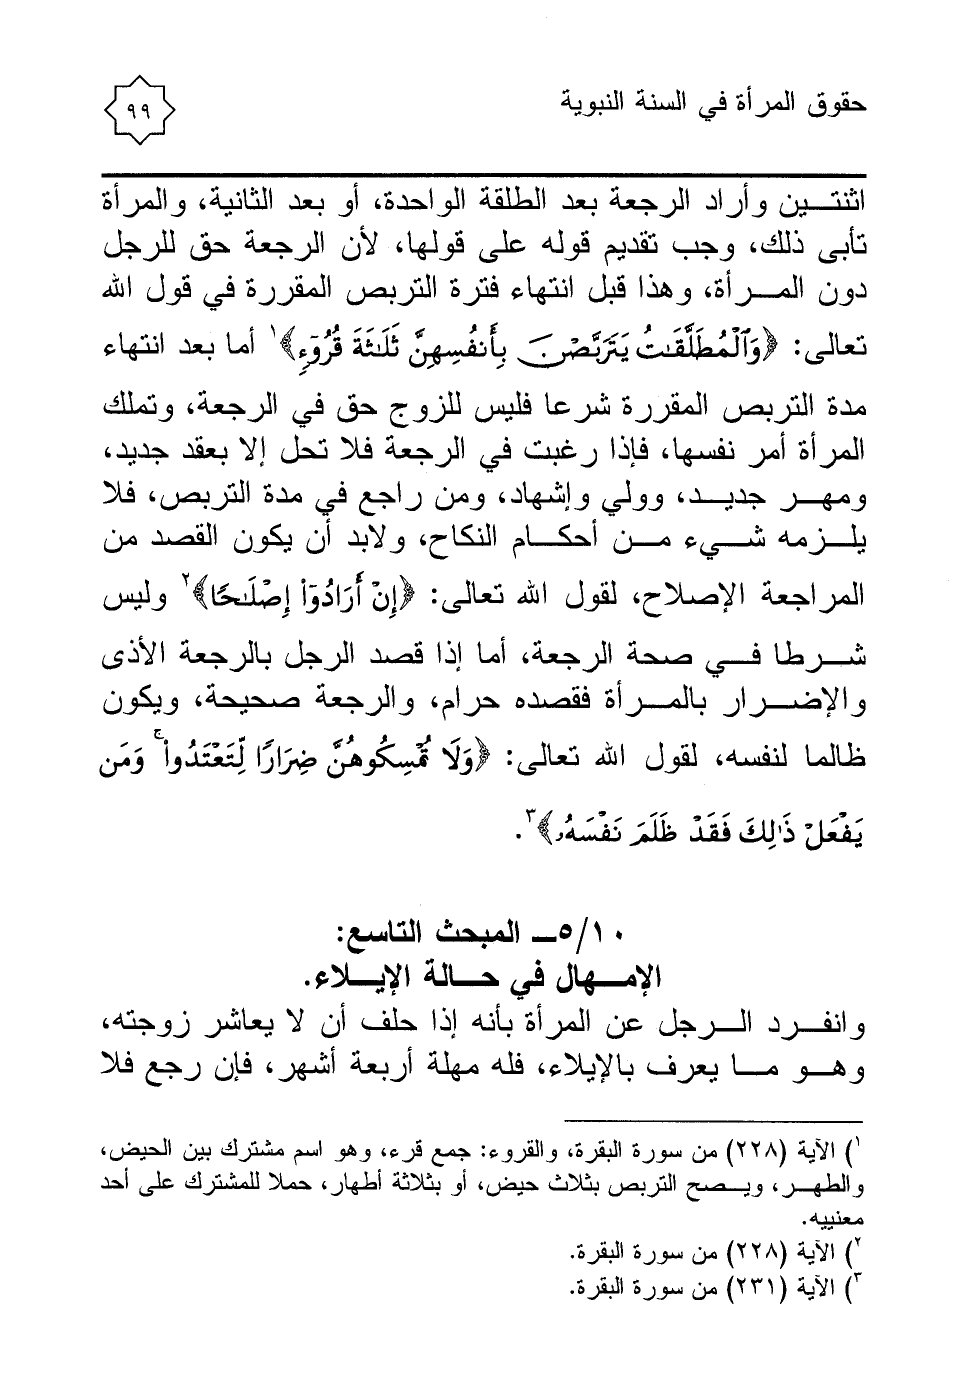 حقوق المرأة في السنة النبوية
٩٩
اثنتين وأراد الرجعة بعد الطلقة الواحدة، أو بعد الثانية، والمرأة
تأبى ذلك، وجب تقديم قوله على قولها، لأن الرجعة حق للرجل
دون المرأة، وهذا قبل انتهاء فترة التربص المقررة في قول الله
تعالى: ﴿وَٱلْمُطَلَّقَـٰتُ يَتَرَبَّصْنَ بِأَنفُسِهِنَّ ثَلَـٰثَةَ قُرُوٓءٍ﴾١ أما بعد انتهاء
مدة التربص المقررة شرعا فليس للزوج حق في الرجعة، وتملك
المرأة أمر نفسها، فإذا رغبت في الرجعة فلا تحل إلا بعقد جديد،
ومهر جديد، وولي وإشهاد، ومن راجع في مدة التربص، فلا
يلزمه شيء من أحكام النكاح، ولابد أن يكون القصد من
المراجعة الإصلاح، لقول الله تعالى: ﴿إِنْ أَرَادُوٓا۟ إِصْلَـٰحًا﴾٢ وليس
شرطا في صحة الرجعة، أما إذا قصد الرجل بالرجعة الأذى
والإضرار بالمرأة فقصده حرام، والرجعة صحيحة، ويكون
ظالما لنفسه، لقول الله تعالى: ﴿وَلَا تُمْسِكُوهُنَّ ضِرَارًا لِّتَعْتَدُوا۟ ۚ وَمَن
يَفْعَلْ ذَٰلِكَ فَقَدْ ظَلَمَ نَفْسَهُۥ﴾٣.
٥/١٠ـ المبحث التاسع:
الإمهال في حالة الإيلاء.
وانفرد الرجل عن المرأة بأنه إذا حلف أن لا يعاشر زوجته،
وهو ما يعرف بالإيلاء، فله مهلة أربعة أشهر، فإن رجع فلا
١) الآية (٢٢٨) من سورة البقرة، والقروء: جمع قرء، وهو اسم مشترك بين الحيض،
والطهر، ويصح التربص بثلاث حيض، أو بثلاثة أطهار، حملا للمشترك على أحد
معنييه.
٢) الآية (٢٢٨) من سورة البقرة.
٣) الآية (٢٣١) من سورة البقرة.